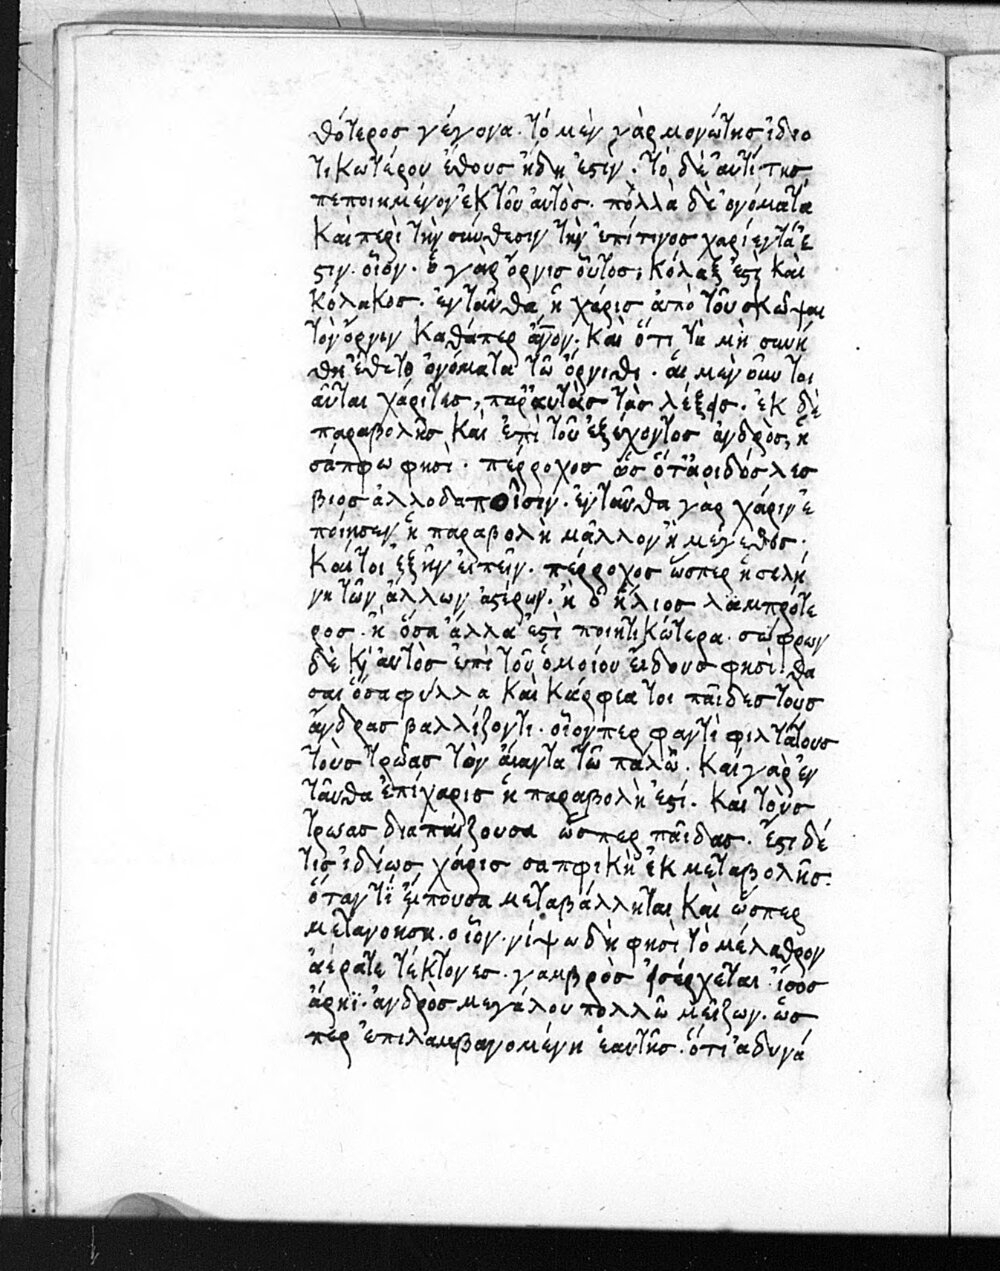 θότερος γέγονα. τὸ μὲν γὰρ μονώτης ἰδιο
τικωτέρου ἔθους ἤδη ἐστιν. τὸ δὲ αὐτίτης
πεποιημένον ἐκ τοῦ αὐτός. πολλὰ δὲ ὀνόματα
καὶ περὶ τὴν σύνθεσιν τὴν ἐπί τινος χαρίεντα ἐ
στιν. οἷον. ὁ γὰρ ὄρνις οὗτος, κόλαξ ἐστὶ καὶ
κόλακος. ἐνταῦθα ἡ χάρις ἀπὸ τοῦ σκῶψαι
τὸν ὄρνιν καθάπερ ἄνον. καὶ ὅτι τὰ μὴ συνή
θη ἔθετο ὀνόματα τῶ ὄρνιθι. αἱ μὲν οὖν τοι
αῦται χάριτες, παρ' αὐτὰς τὰς λέξεις. ἐκ δὲ
παραβολῆς καὶ ἐπὶ τοῦ ἐξέχοντος ἀνδρὸς, ἡ
σάπφω φησὶ. πέρροχος ὡς ὅτ' ἀοιδὸς λεσ
βιος ἀλλοδαποῖσιν. ἐνταῦθα γὰρ χάριν ἐ
ποίησεν ἡ παραβολὴ μᾶλλον ἢ μέγεθος.
καίτοι ἐξῆν εἰπεῖν. πέρροχος ὥσπερ ἡ σελή
νη τῶν ἄλλων ἀστέρων. ἢ ὁ ἥλιος λαμπρότε
ρος. ἢ ὅσα ἄλλα ἐστὶ ποιητικώτερα. σώφρων
δὲ κ' αὐτὸς ἐπὶ τοῦ ὁμοίου εἴδους φησὶ. θα
σαι ὅσα φύλλα καὶ κάρφεα τοι παῖδες τοὺς
ἄνδρας βαλλίζοντι. οἷον περ φαντὶ φιλτάτους
τοὺς τρῶας τὸν αἴαντα τῶ παλῶ. καὶ γὰρ ἐν
ταῦθα ἐπίχαρις ἡ παραβολὴ ἐστί. καὶ τοὺς
τρῶας διαπαίζουσα ὥσπερ παῖδας. ἔστι δέ
τις ἰδίως χάρις σαπφικὴ ἐκ μεταβολῆς.
ὅταν τί εἰποῦσα μεταβάλληται καὶ ὥσπερ
μετανοήση. οἷον. νίψω δὴ φησὶ τὸ μέλαθρον
ἀέρατε τέκτονες. γαμβρὸς εἰσέρχεται ἴσος
ἄρηϊ. ἀνδρὸς μεγάλου πολλῶ μείζων. ὥσ
περ ἐπιλαμβανομένη ἑαυτῆς. ὅτι ἀδυνά